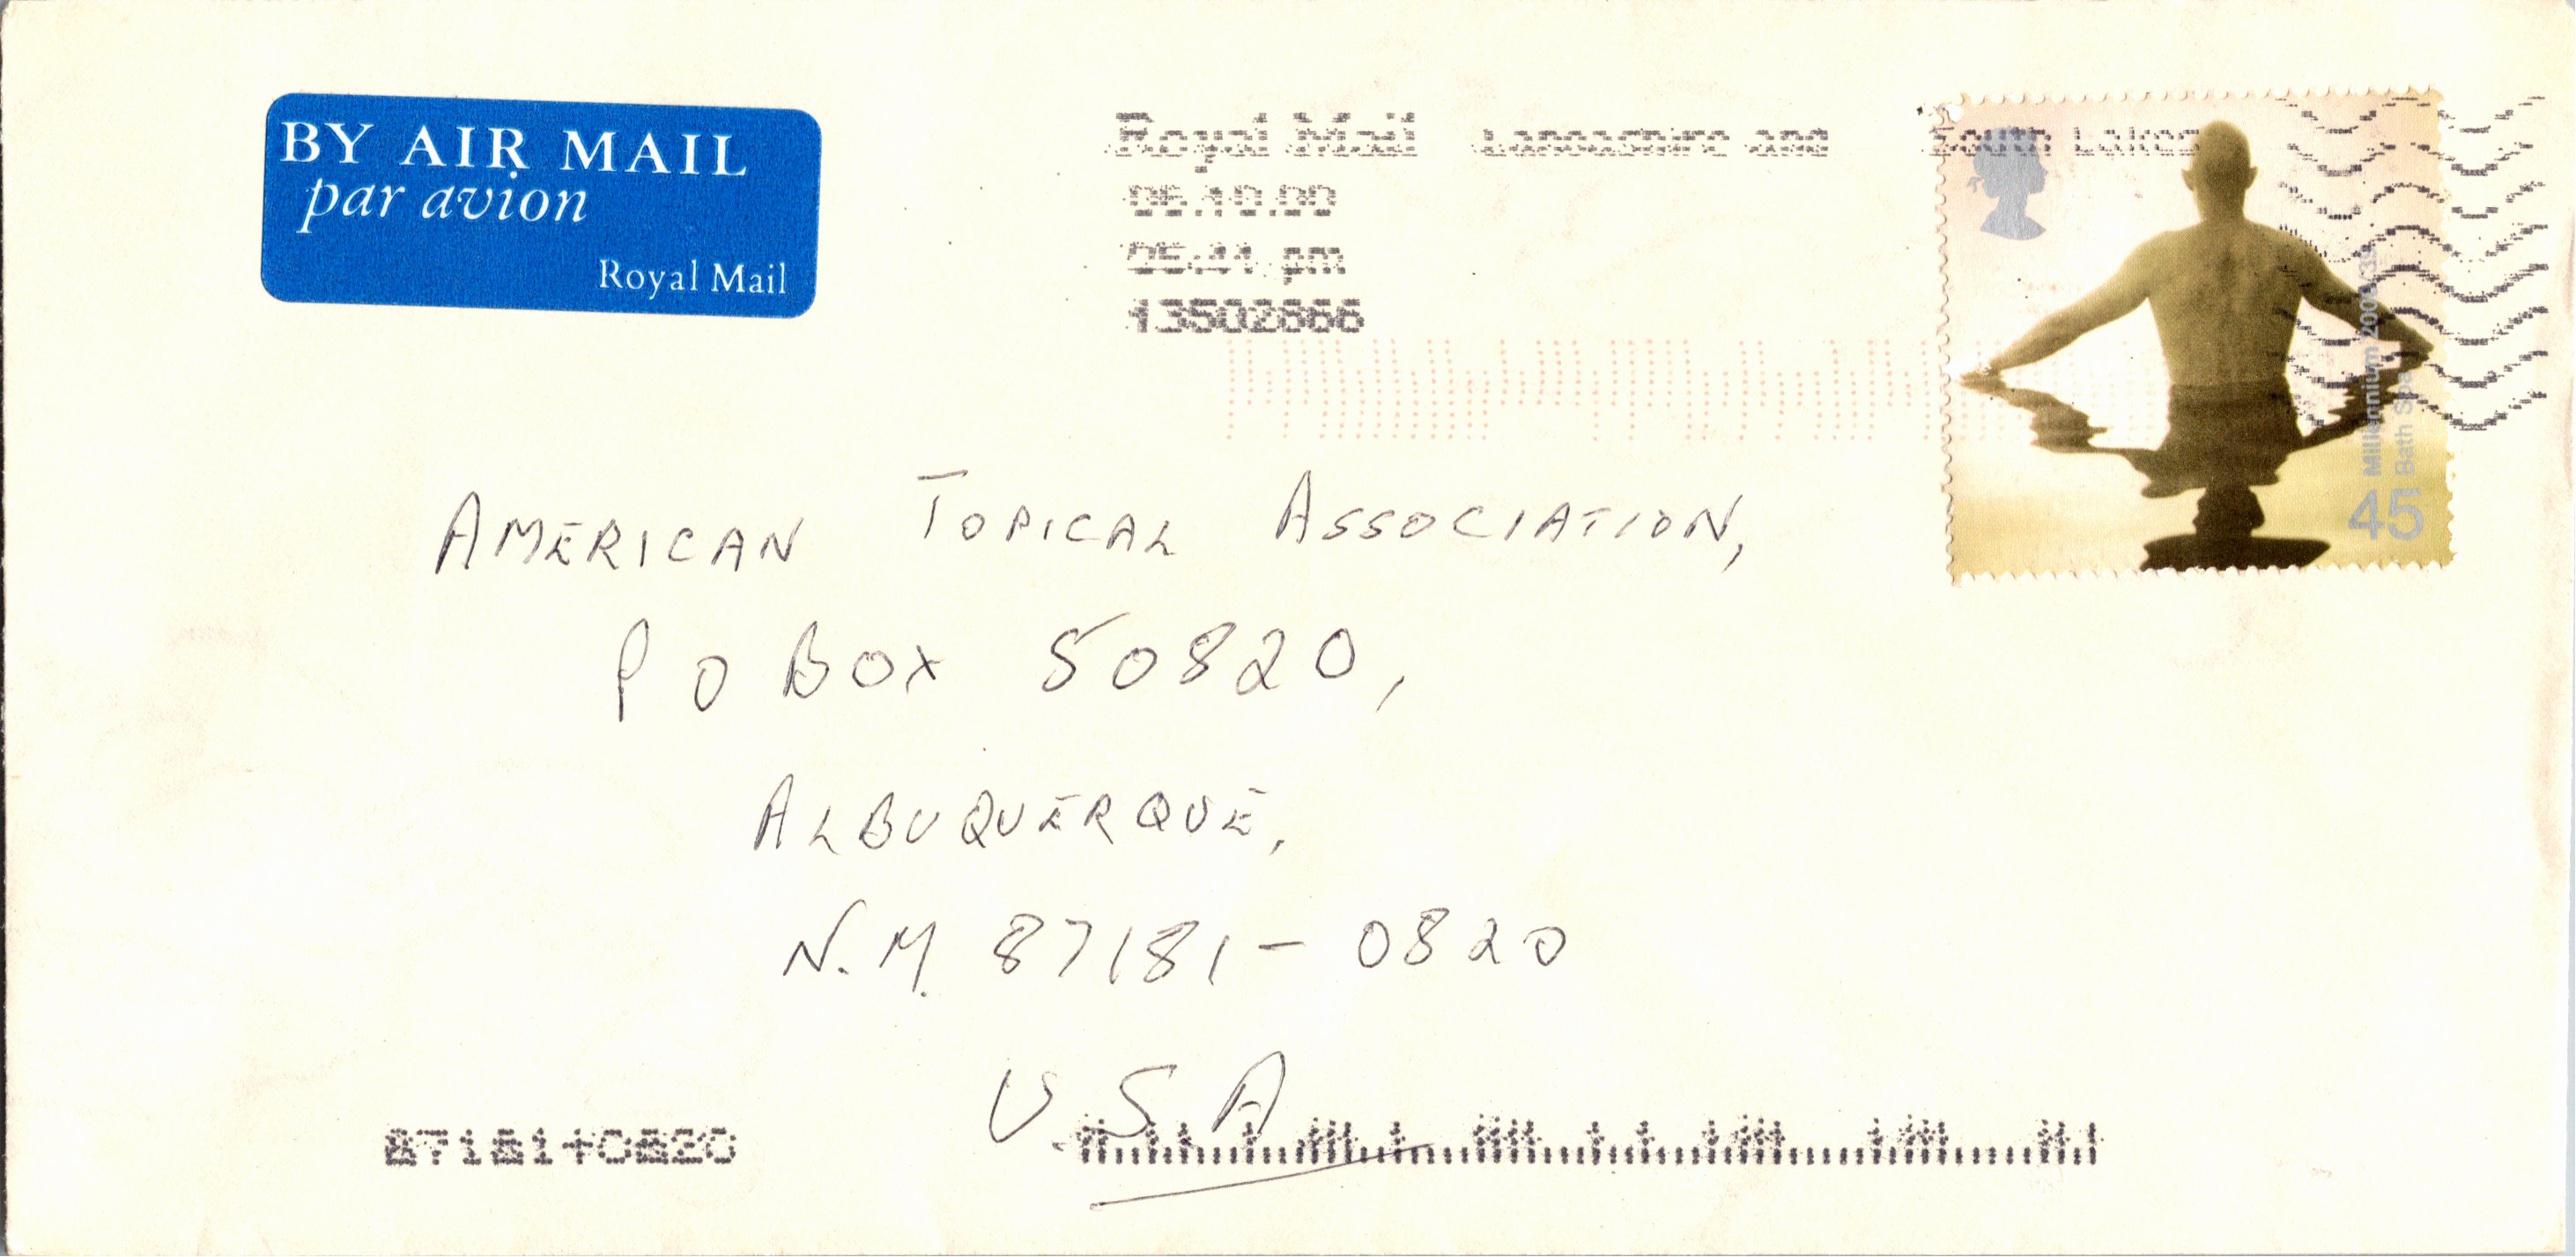 BY AIR MAIL
par avion
Royal Mail
Royal Mail Lancashire and South Lakes
pm
13502866
Millennium 2000
Bath Spa
45
AMERICAN TOPICAL ASSOCIATION,
P O BOX 50820,
ALBUQUERQUE,
N.M. 87181-0820
U.S.A
87181+0820